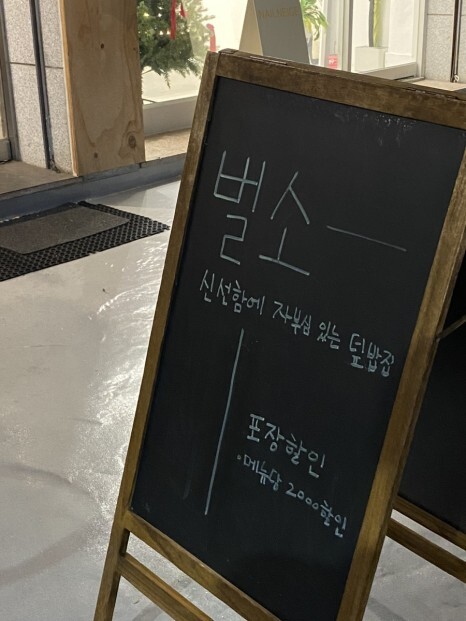 벌소
신선함에 자부심 있는 덮밥집
포장할인
•메뉴당 2000할인